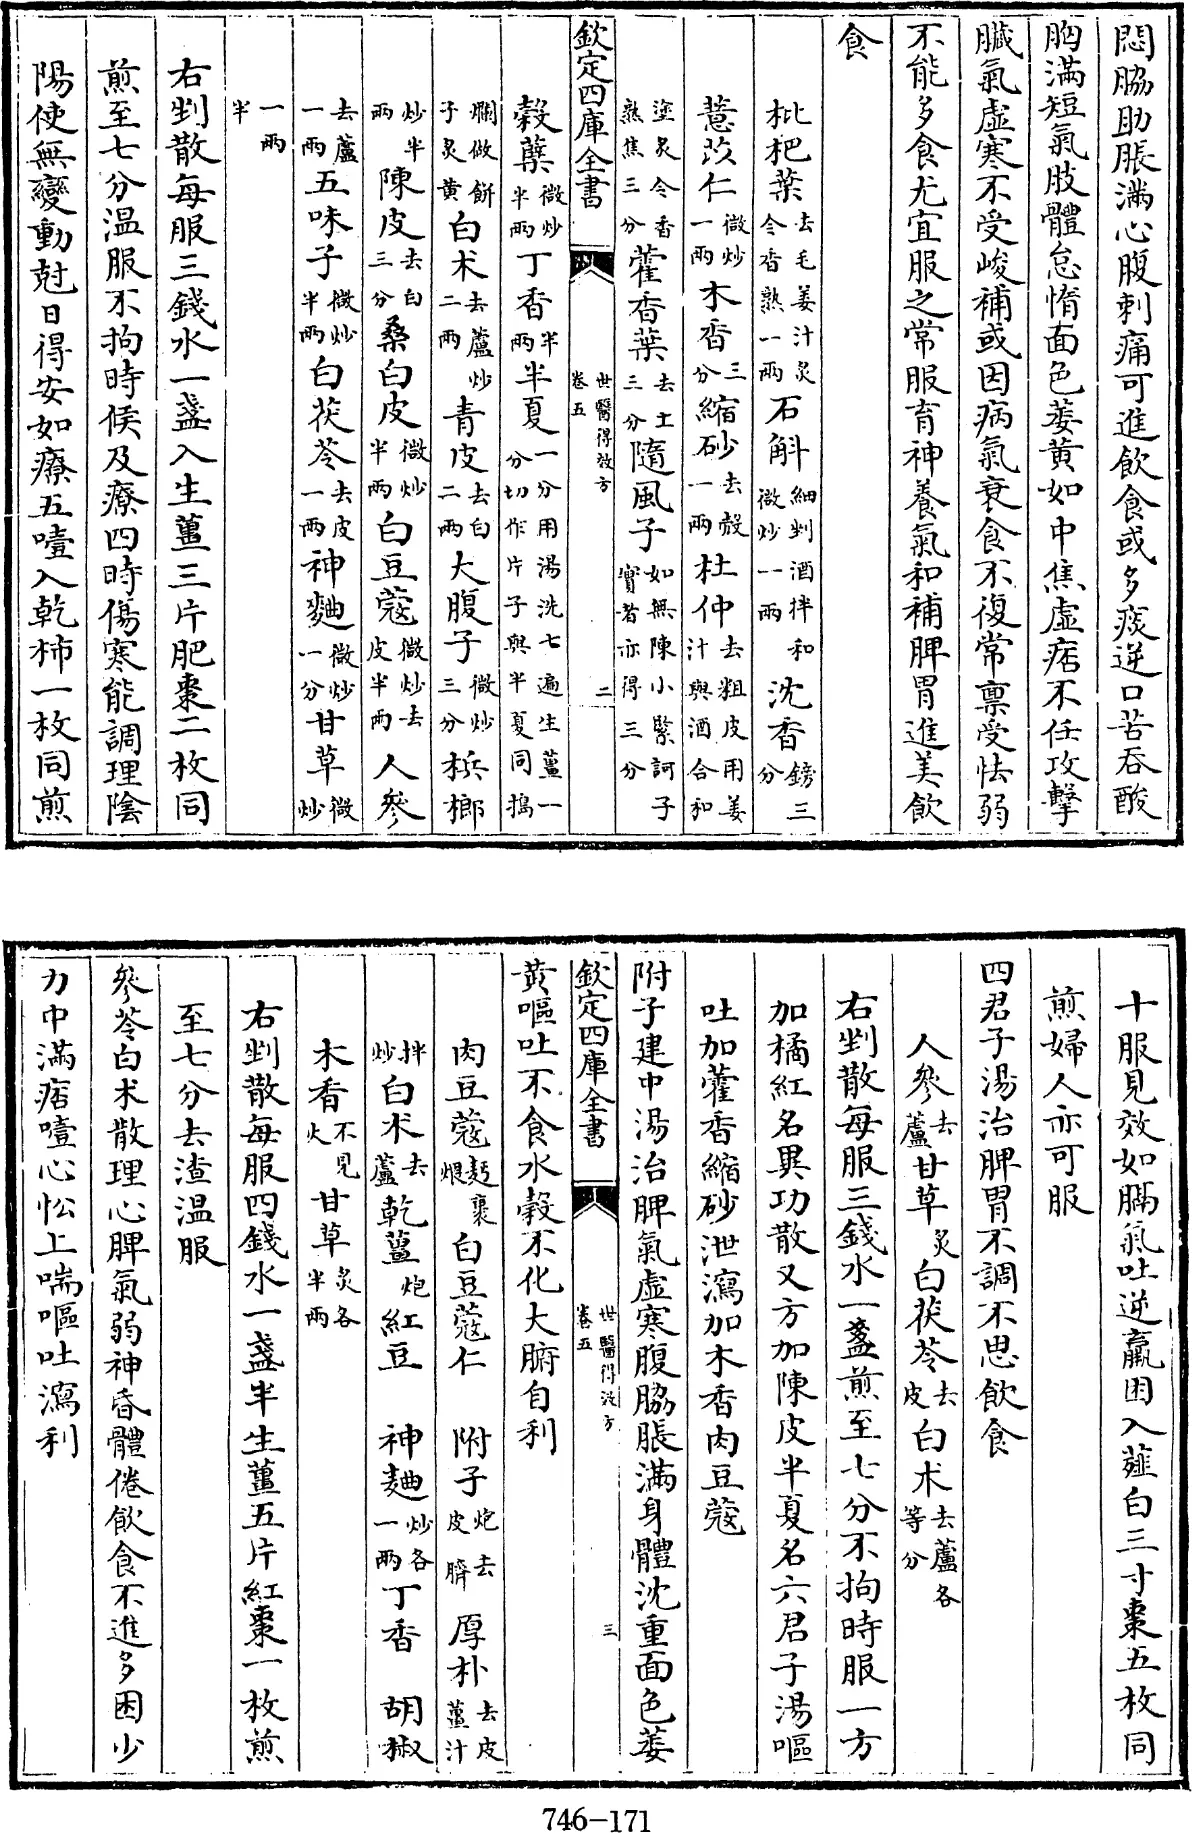 悶脇肋脹滿心腹刺痛可進飲食或多痰逆口苦吞酸
胸滿短氣肢體怠惰面色萎黄如中焦虛痞不任攻擊
臟氣虛寒不受峻補或因病氣衰食不復常禀受怯弱
不能多食尤宜服之常服育神養氣和補脾胃進美飲
食
枇杷葉去毛姜汁炙令香熟一兩石斛細剉酒拌和微炒一兩沈香鎊三分
薏苡仁微炒一兩木香三分縮砂去殼一兩杜仲去粗皮用姜汁與酒合和
塗炙令香熟焦三分藿香葉去土三分隨風子如無陳小緊訶子實者亦得三分
欽定四庫全書 世醫得效方 卷五 二
榖蘖微炒半兩丁香半兩半夏一分用湯洗七遍生薑一分切作片子與半夏同搗
爛做餅子炙黄白术去蘆炒二兩青皮去白二兩大腹子微炒三分梹榔
炒半兩陳皮去白三分桑白皮微炒半兩白豆蔻微炒去皮半兩人參
去蘆一兩五味子微炒半兩白茯苓去皮一兩神麯微炒一分甘草微炒
一兩半
右剉散每服三錢水一盞入生薑三片肥棗二枚同
煎至七分溫服不拘時候及療四時傷寒能調理陰
陽使無變動尅日得安如療五噎入乾柿一枚同煎
十服見效如膈氣吐逆羸困入薤白三寸棗五枚同
煎婦人亦可服
四君子湯治脾胃不調不思飲食
人參去蘆甘草炙白茯苓去皮白术去蘆各等分
右剉散每服三錢水一盞煎至七分不拘時服一方
加橘紅名異功散又方加陳皮半夏名六君子湯嘔
吐加藿香縮砂泄瀉加木香肉豆蔻
附子建中湯治脾氣虛寒腹脇脹滿身體沈重面色萎
欽定四庫全書 世醫得效方 卷五 三
黄嘔吐不食水榖不化大腑自利
肉豆蔻麪裹煨白豆蔻仁附子炮去皮臍厚朴去皮薑汁
拌炒白术去蘆乾薑炮紅豆神麯炒各一兩丁香胡椒
木香不見火甘草炙各半兩
右剉散每服四錢水一盞半生薑五片紅棗一枚煎
至七分去渣溫服
參苓白术散理心脾氣弱神昏體倦飲食不進多困少
力中滿痞噎心忪上喘嘔吐瀉利
746-171